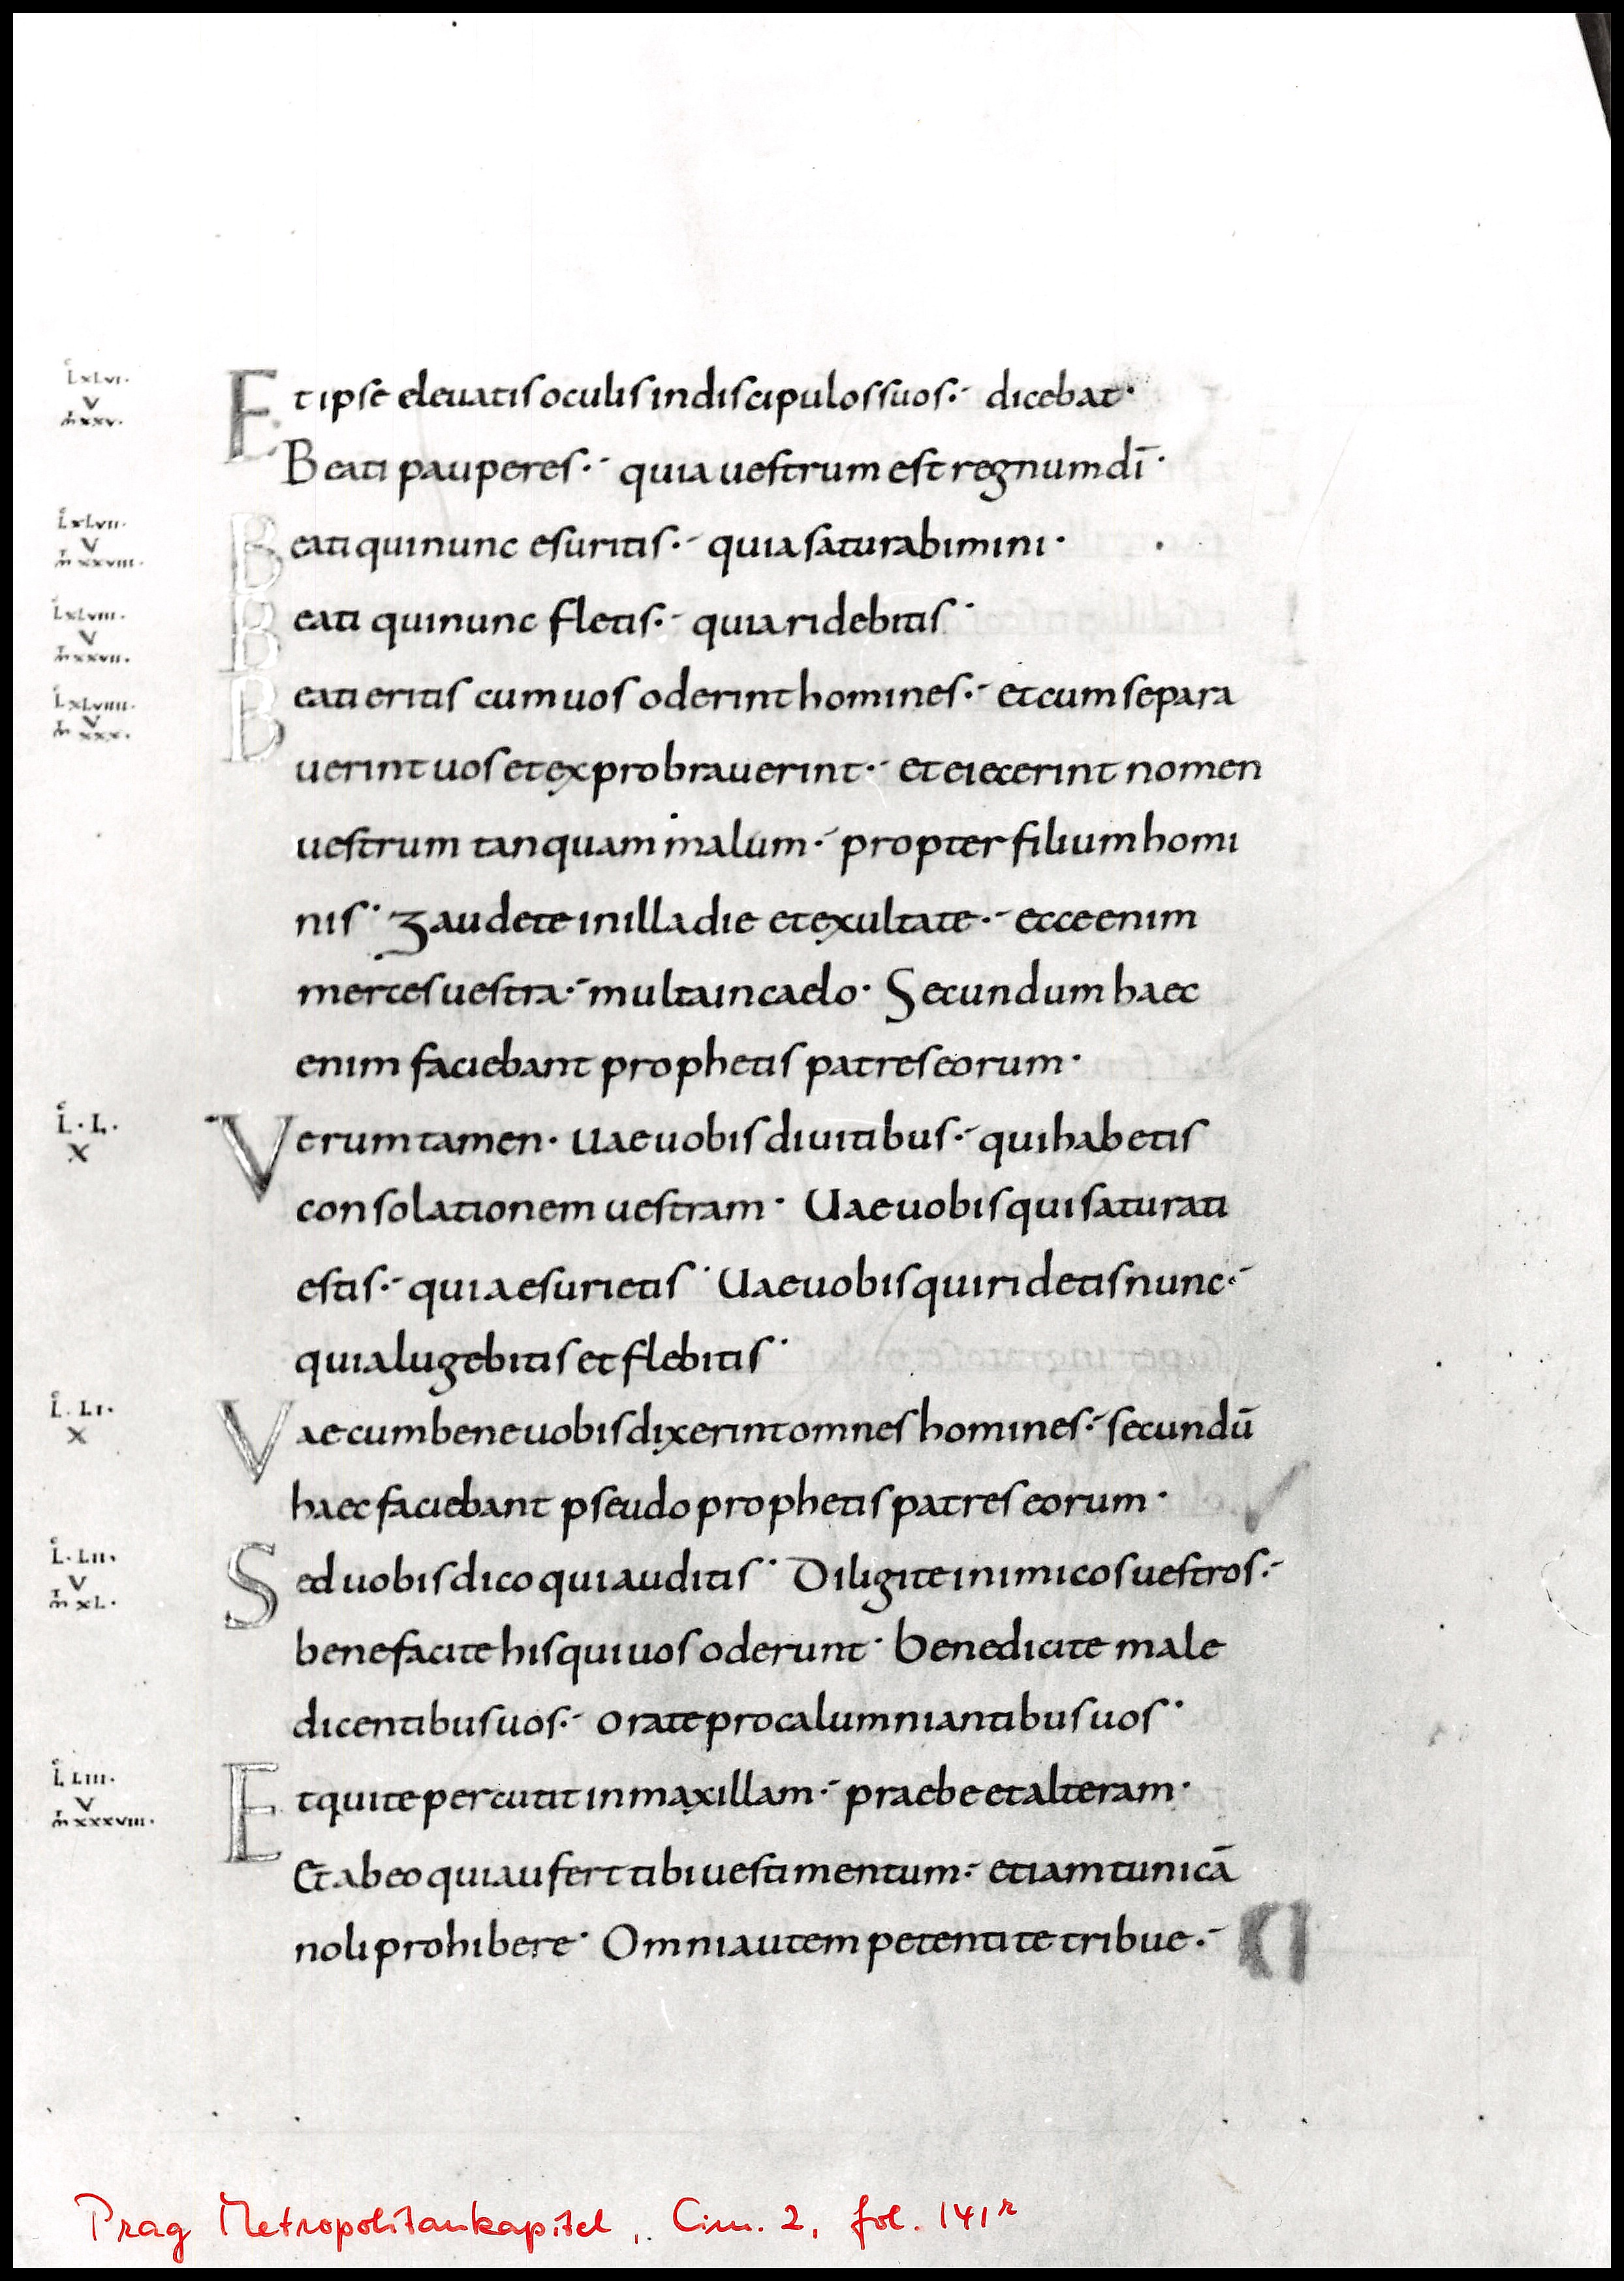 L xLvi·
V
m xxv·
Et ipse eleuatis oculis in discipulos suos·- dicebat·
Beati pauperes·- quia uestrum est regnum dī·
L xLvii·
V
m xxviii·
Beati qui nunc esuritis·- quia saturabimini·
L xLviii·
V
m xxvii·
Beati qui nunc fletis·- quia ridebitis·
L xLviiii·
V
m xxx·
Beati eritis cum uos oderint homines·- et cum separa
uerint uos et exprobrauerint·- et eiecerint nomen
uestrum tanquam malum·- propter filium homi
nis· Gaudete in illa die et exultate·- ecce enim
merces uestra·- multa in caelo· Secundum haec
enim faciebant prophetis patres eorum·
L·L·
X
Verum tamen· uae uobis diuitibus·- qui habetis
consolationem uestram· Uae uobis qui saturati
estis·- quia esurietis· Uae uobis qui ridetis nunc·-
quia lugebitis et flebitis·
L·Li·
X
Vae cum bene uobis dixerint omnes homines·- secundū
haec faciebant pseudo prophetis patres eorum·
L·Lii·
V
m xL·
Sed uobis dico qui auditis· Diligite inimicos uestros·-
benefacite his qui uos oderunt· Benedicite male
dicentibus uos·- orate pro calumniantibus uos·
L Liii·
V
m xxxviii·
Et qui te percutit in maxillam·- praebe et alteram·
Et ab eo qui aufert tibi uestimentum·- etiam tunicā
noli prohibere· Omni autem petenti te tribue·-
Prag Metropolitankapitel, Cim. 2, fol. 141r